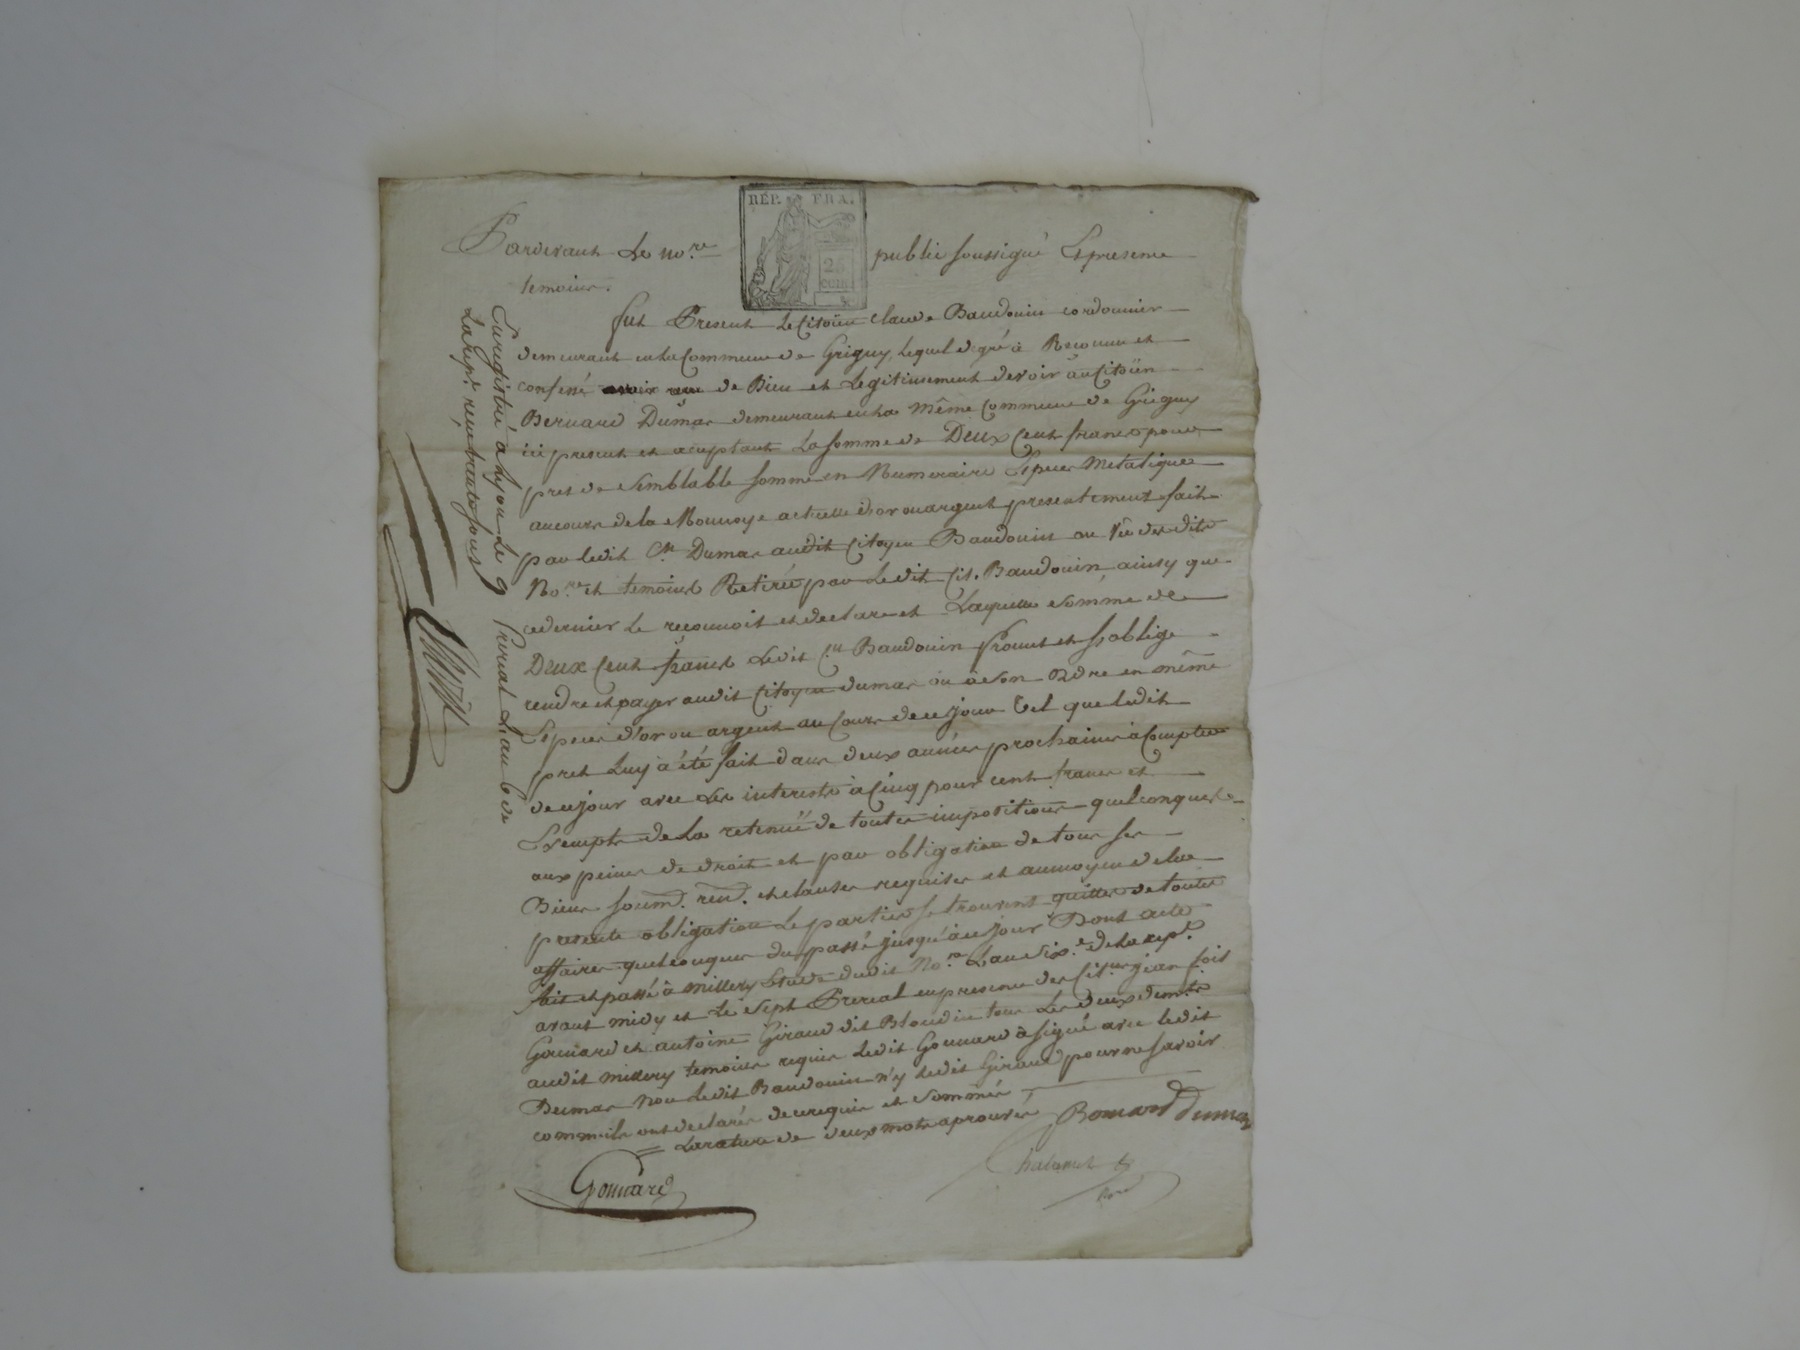 RÉP. FRA.
25
CEN.
Pardevant Le no.re public soussigné Et presence
temoins.
fut Present Le Citoÿen Claude Baudouin cordonnier
demeurant en la Commune de Grigny, lequel de gré à Reconnu et
confessé avoir reçu de Bien et Legitimement devoir au Citoÿen
Bernard Dumas demeurant en la même Commune de Grigny
ici present et aceptant La somme de Deux Cent francs pour
pret de semblable somme en Numeraire Espece Metalique
au cours de la Monnoye actuelle d'or ou argent presentement fait
par ledit C.n Dumas audit Citoyen Baudouin au Vû desdits
No.re et temoins Retirée par Ledit Cit. Baudouin, ainsy que
ce dernier Le reconnoit et declare et Laquelle somme de
Deux Cent francs Ledit C.n Baudouin Promet et s'oblige
rendre et payer audit Citoyen Dumas ou à son Ordre en même
Especes d'or ou argent au Cours de ce jour tel que ledit
pret Luy à été fait dans deux années prochaines à Compter
de ce jour avec Les interests à Cinq pour cent francs et
Exempts de La retenuë de toutes impositions quelconques
aux peines de droit et par obligation de tous ses
Biens soum. ren. et clauses requises et au moyen de la
presente obligation Les parties se trouvent quittes de toutes
affaires quelconques du passé jusqu'à ce jour Dont acte
fait et passé à Millery Etude dudit No.re L'an six.e de la rep.e
avant midy et Le Sept Prerial en presence des Cit.ens jean fois
Gonnard et antoine Giraud dit Blondin tous Les deux dem.ts
audit Millery temoins requis Ledit Gonnard à signé avec ledit
Dumas Non Ledit Baudouin n'y Ledit Giraud pour ne savoir
comme ils ont declarés de ce requis et sommés
La rature de deux mots aprouvés
Bernard Dumas
Gonnard
Chalamet
No.re
Enregistré à Lyon le 9 Prerial L'an 6 de
La rep.e reçu trente sous